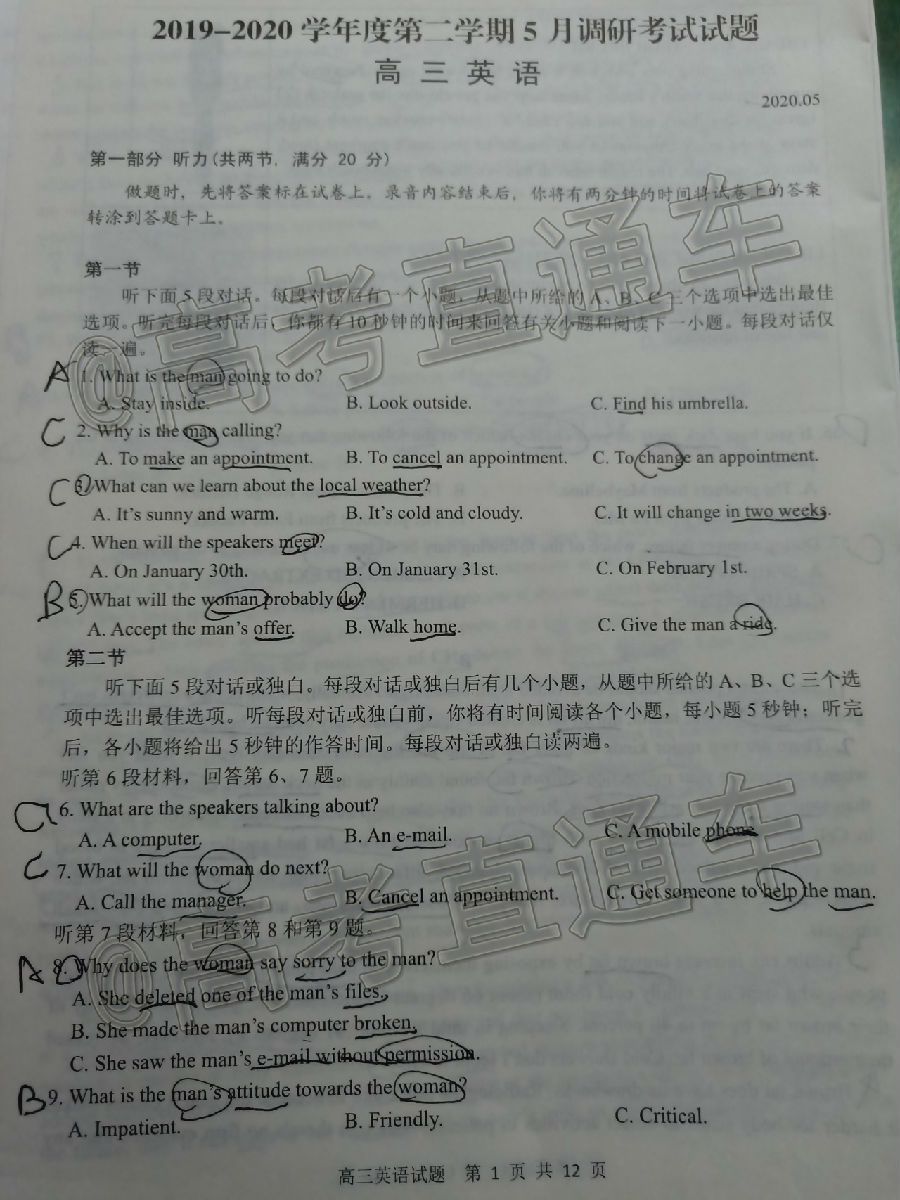 2019-2020 学年度第二学期 5 月调研考试试题
高 三 英 语
2020.05
第一部分 听力(共两节，满分 20 分)
做题时，先将答案标在试卷上。录音内容结束后，你将有两分钟的时间将试卷上的答案
转涂到答题卡上。
第一节
听下面 5 段对话。每段对话后有一个小题，从题中所给的 A、B、C 三个选项中选出最佳
选项。听完每段对话后，你都有 10 秒钟的时间来回答有关小题和阅读下一小题。每段对话仅
读一遍。
A 1. What is the man going to do?
A. Stay inside. B. Look outside. C. Find his umbrella.
C 2. Why is the man calling?
A. To make an appointment. B. To cancel an appointment. C. To change an appointment.
C 3. What can we learn about the local weather?
A. It's sunny and warm. B. It's cold and cloudy. C. It will change in two weeks.
C 4. When will the speakers meet?
A. On January 30th. B. On January 31st. C. On February 1st.
B 5. What will the woman probably do?
A. Accept the man's offer. B. Walk home. C. Give the man a ride.
第二节
听下面 5 段对话或独白。每段对话或独白后有几个小题，从题中所给的 A、B、C 三个选
项中选出最佳选项。听每段对话或独白前，你将有时间阅读各个小题，每小题 5 秒钟；听完
后，各小题将给出 5 秒钟的作答时间。每段对话或独白读两遍。
听第 6 段材料，回答第 6、7 题。
6. What are the speakers talking about?
A. A computer. B. An e-mail. C. A mobile phone.
C 7. What will the woman do next?
A. Call the manager. B. Cancel an appointment. C. Get someone to help the man.
听第 7 段材料，回答第 8 和第 9 题。
A 8. Why does the woman say sorry to the man?
A. She deleted one of the man's files.
B. She made the man's computer broken.
C. She saw the man's e-mail without permission.
B 9. What is the man's attitude towards the woman?
A. Impatient. B. Friendly. C. Critical.
高三英语试题 第 1 页 共 12 页
@高考直通车
@高考直通车